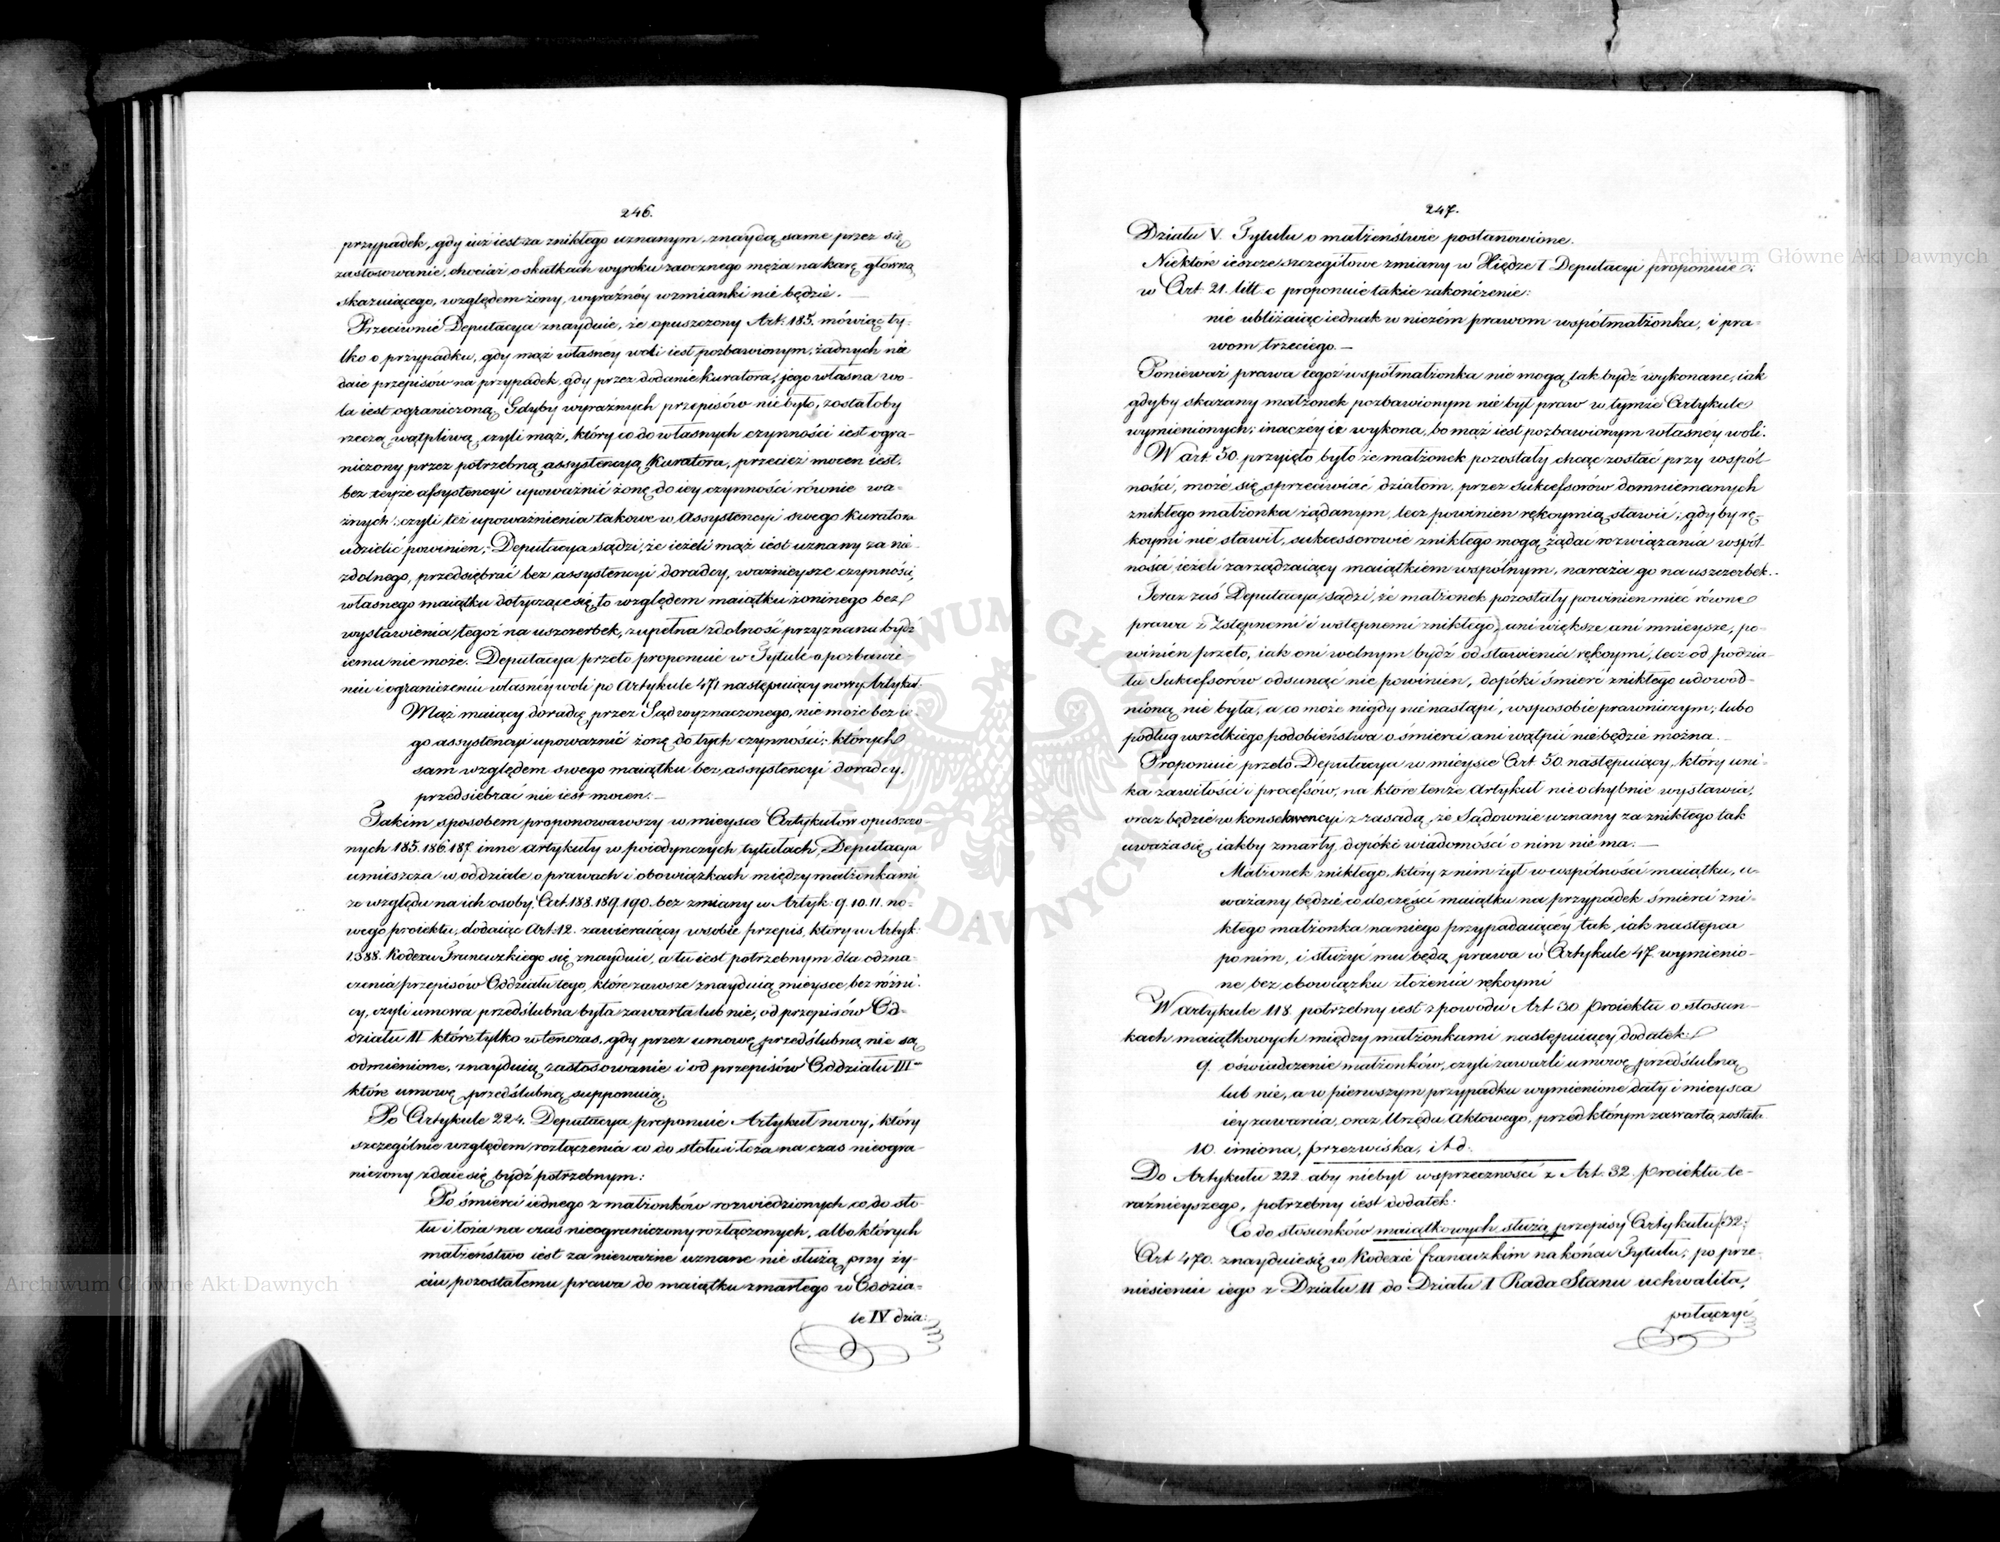 246.
przypadek, gdy iuż iest za znikłego uznanym, znaydą same przez się
zastosowanie, chociaż o skutkach wyroku zaocznego męża na karę główną
skazuiącego, względem żony, wyraźnéy wzmianki nie będzie. —
Przeciwnie Deputacya znayduie, że opuszczony Art: 185. mówiąc ty-
lko o przypadku, gdy mąż własnéy woli iest pozbawionym, żadnych nie
daie przepisów na przypadek, gdy przez dodanie kuratora, jego własna wo-
la iest ograniczoną. Gdyby wyraźnych przepisów nie było, zostałoby
rzeczą wątpliwą, czyli mąż, który co do własnych czynności iest ogra-
niczony przez potrzebną assystencyą Kuratora, przecież mocen iest,
bez teyże assystencyi upoważnić żonę do iey czynności równie wa-
żnych, czyli też upoważnienia takowe w Assystencyi swego Kuratora
udzielić powinien; Deputacya sądzi, że ieżeli mąż iest uznany za nie-
zdolnego, przedsiębrać bez assystencyi doradcy, ważnieysze czynności,
własnego maiątku dotyczące się, to względem maiątku żoninego bez
wystawienia tegoż na uszczerbek, zupełna zdolność przyznana bydź
iemu nie może. Deputacya przeto proponuie w Tytule o pozbawie-
niu i ograniczeniu własnéy woli po Artykule 471 następuiący nowy Artykuł:
Mąż maiący doradcę, przez Sąd wyznaczonego, nie może bez ie-
go assystencyi upoważnić żonę do tych czynności, których
sam względem swego maiątku bez assystencyi doradcy,
przedsiebrać nie iest mocen. —
Takim sposobem proponowawszy w mieysce Artykułów opuszczo-
nych 185. 186. 187. inne artykuły w poiedynczych tytułach, Deputacya
umieszcza w oddziale o prawach i obowiązkach między małżonkami
ze względu na ich osoby, Art. 188. 189. 190. bez zmiany w Artyk: 9. 10. 11. no-
wego proiektu, dodaiąc Art: 12. zawieraiący w sobie przepis, który w Artyk:
1388. Kodexu Francuzkiego się znayduie, a tu iest potrzebnym dla odzna-
czenia przepisów Oddziału tego, które zawsze znayduią mieysce bez różni-
cy, czyli umowa przedślubna była zawarta lub nie, od przepisów Od-
działu II które tylko wtenczas, gdy przez umowę przedślubną nie są
odmienione, znayduią zastosowanie i od przepisów Oddziału III-
które umowę przedślubną supponuią.
Po Artykule 224. Deputacya proponuie Artykuł nowy, który
szczególnie względem rozłączenia co do stołu i łoża na czas nieogra-
niczony zdaie się bydź potrzebnym:
Po śmierci iednego z małżonków rozwiedzionych, co do sto-
łu i łoża na czas nieograniczony rozłączonych, albo których
małżeństwo iest za nieważne uznane nie służą przy ży-
ciu pozostałemu prawa do maiątku zmarłego w Oddzia-
le IV dzia:
247.
Działu V. Tytułu o małżeństwie postanowione.
Niektóre ieszcze szczegółowe zmiany w Xiędze I Deputacyi proponuie:
w Art 21. litt. c proponuie takie zakończenie:
nie ubliżaiąc iednak w niczém prawom współmałżonka, i pra-
wom trzeciego. —
Ponieważ prawa tegoż współmałżonka nie mogą tak bydź wykonane, iak
gdyby skazany małżonek pozbawionym nie był praw w tymże Artykule
wymienionych; inaczey ie wykona, bo mąż iest pozbawionym własnéy woli.
W art. 50. przyięto było że małżonek pozostały chcąc zostać przy wspól-
ności, może się sprzeciwiać działom, przez Sukcessorów domniemanych
znikłego małżonka żądanym, lecz powinien rękoymią stawić; gdyby rę-
koymi nie stawił, sukcessorowie znikłego mogą żądać rozwiązania wspól-
ności, ieżeli zarządzaiący maiątkiem wspólnym, naraża go na uszczerbek.
Teraz zaś Deputacya sądzi, że małżonek pozostały powinien mieć równe
prawa z Zstępnemi i wstępnemi znikłego, ani większe, ani mnieysze, po-
winien przeto, iak oni wolnym bydź od stawienia rękoymi, lecz od podzia-
łu Sukcessorów odsunąć nie powinien, dopóki śmierć znikłego udowod-
nioną nie była, a co może nigdy nie nastąpi, w sposobie prawniczym, lubo
podług wszelkiego podobieństwa o śmierci ani wątpić nie będzie można.
Proponuie przeto Deputacya w mieysce Art 50. następuiący, który uni-
ka zawiłości i processów, na które tenże Artykuł nieochybnie wystawia,
oraz będzie w konsekwencyi z zasadą, że Sądownie uznany za znikłego tak
uważa się, iakby zmarły, dopóki wiadomości o nim nie ma. —
Małżonek znikłego, który z nim żył w wspólności maiątku, u-
ważany będzie co do części maiątku na przypadek śmierci zni-
kłego małżonka na niego przypadaiącéy tak, iak następca
po nim, i służyć mu będą prawa w Artykule 47. wymienio-
ne bez obowiązku złożenia rękoymi
W artykule 118. potrzebny iest z powodu Art 30 proiektu o stosun-
kach maiątkowych między małżonkami następuiący dodatek:
9. oświadczenie małżonków, czyli zawarli umowę przedślubną
lub nie, a w pierwszym przypadku wymienione daty i mieysca
iey zawarcia, oraz Urzędu Aktowego, przed którym zawarta została
10. imiona, przezwiska, i t d.
Do Artykułu 222. aby niebył w sprzeczności z Art. 32. proiektu te-
raźnieyszego, potrzebny iest dodatek:
Co do stosunków maiątkowych służą przepisy Artykułu 32.
Art 470. znayduie się w Kodexie francuzkim na końcu Tytułu, po prze-
niesieniu iego z Działu II do Działu I Rada Stanu uchwaliła,
połączyć
Archiwum Główne Akt Dawnych
Archiwum Główne Akt Dawnych
ARCHIWUM GŁÓWNE AKT DAWNYCH